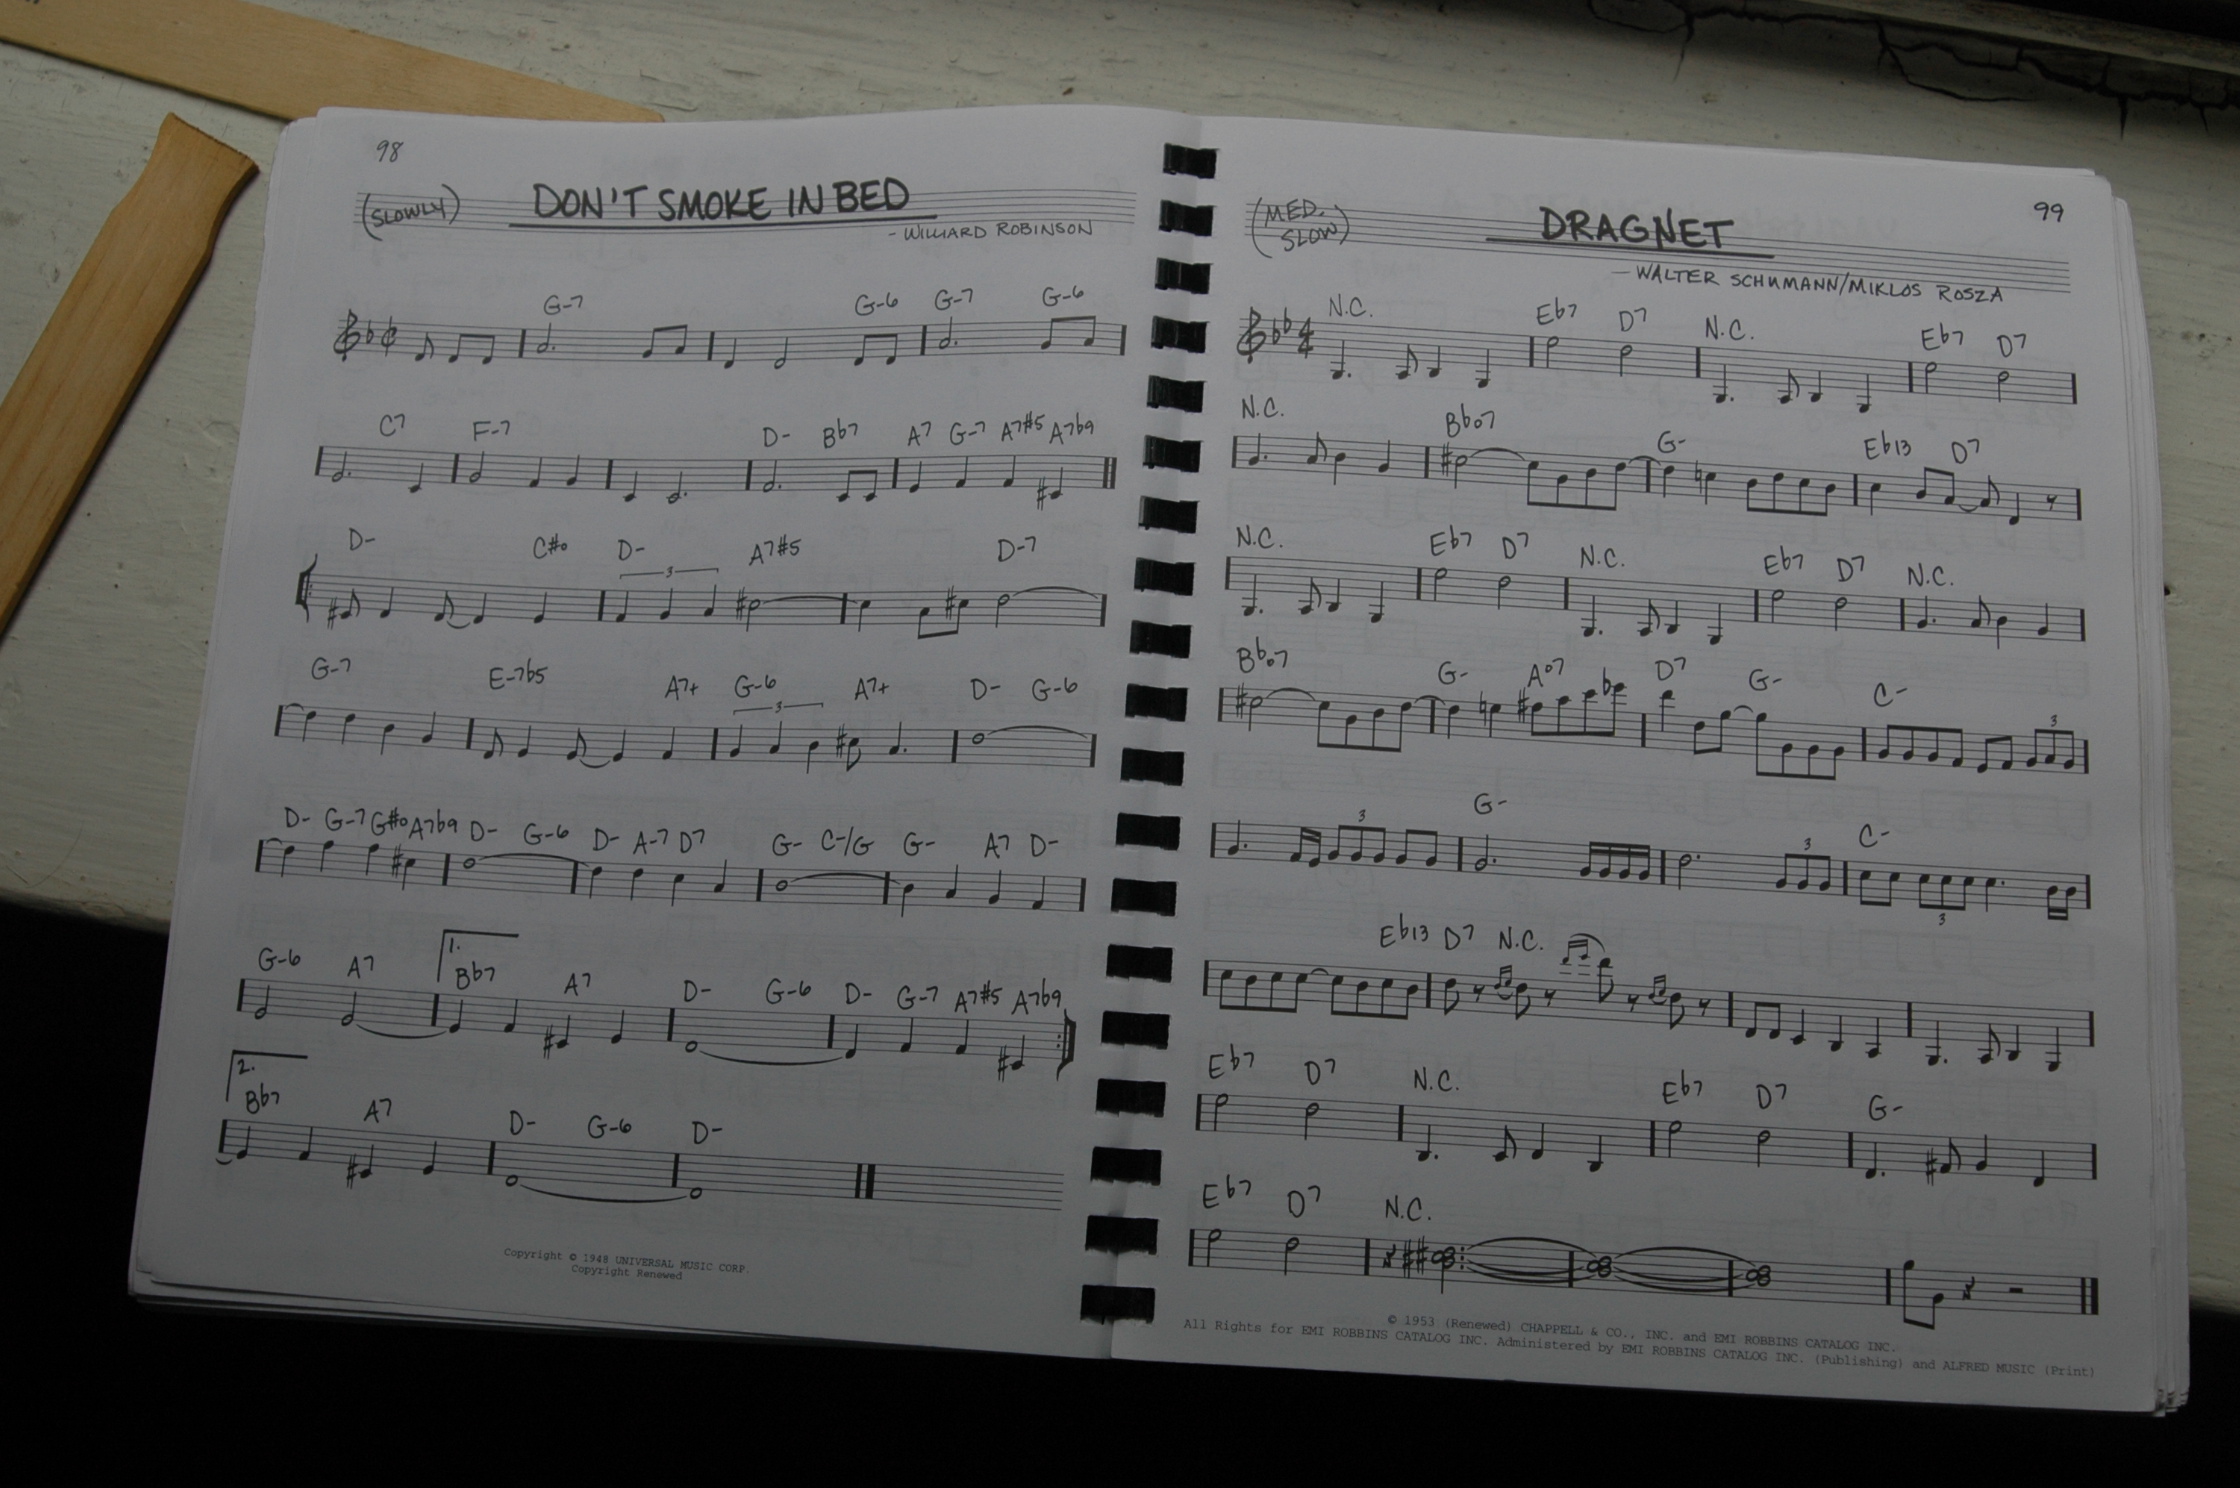 98
(SLOWLY)
DON'T SMOKE IN BED
- WILLIARD ROBINSON
G-7 G-6 G-7 G-6
C7 F-7 D- Bb7 A7 G-7 A7#5 A7b9
D- C#o D- A7#5 D-7
3
G-7 E-7b5 A7+ G-6 A7+ D- G-6
3
D- G-7 G#o A7b9 D- G-6 D- A-7 D7 G- C-/G G- A7 D-
1.
G-6 A7 Bb7 A7 D- G-6 D- G-7 A7#5 A7b9
2.
Bb7 A7 D- G-6 D-
Copyright © 1948 UNIVERSAL MUSIC CORP.
Copyright Renewed
99
(MED. SLOW)
DRAGNET
- WALTER SCHUMANN/MIKLOS ROSZA
N.C. Eb7 D7 N.C. Eb7 D7
4
4
N.C. Bbo7 G- Eb13 D7
N.C. Eb7 D7 N.C. Eb7 D7 N.C.
Bbo7 G- Ao7 D7 G- C-
3
G- C-
3 3 3
Eb13 D7 N.C.
Eb7 D7 N.C. Eb7 D7 G-
Eb7 D7 N.C.
© 1953 (Renewed) CHAPPELL & CO., INC. and EMI ROBBINS CATALOG INC.
All Rights for EMI ROBBINS CATALOG INC. Administered by EMI ROBBINS CATALOG INC. (Publishing) and ALFRED MUSIC (Print)